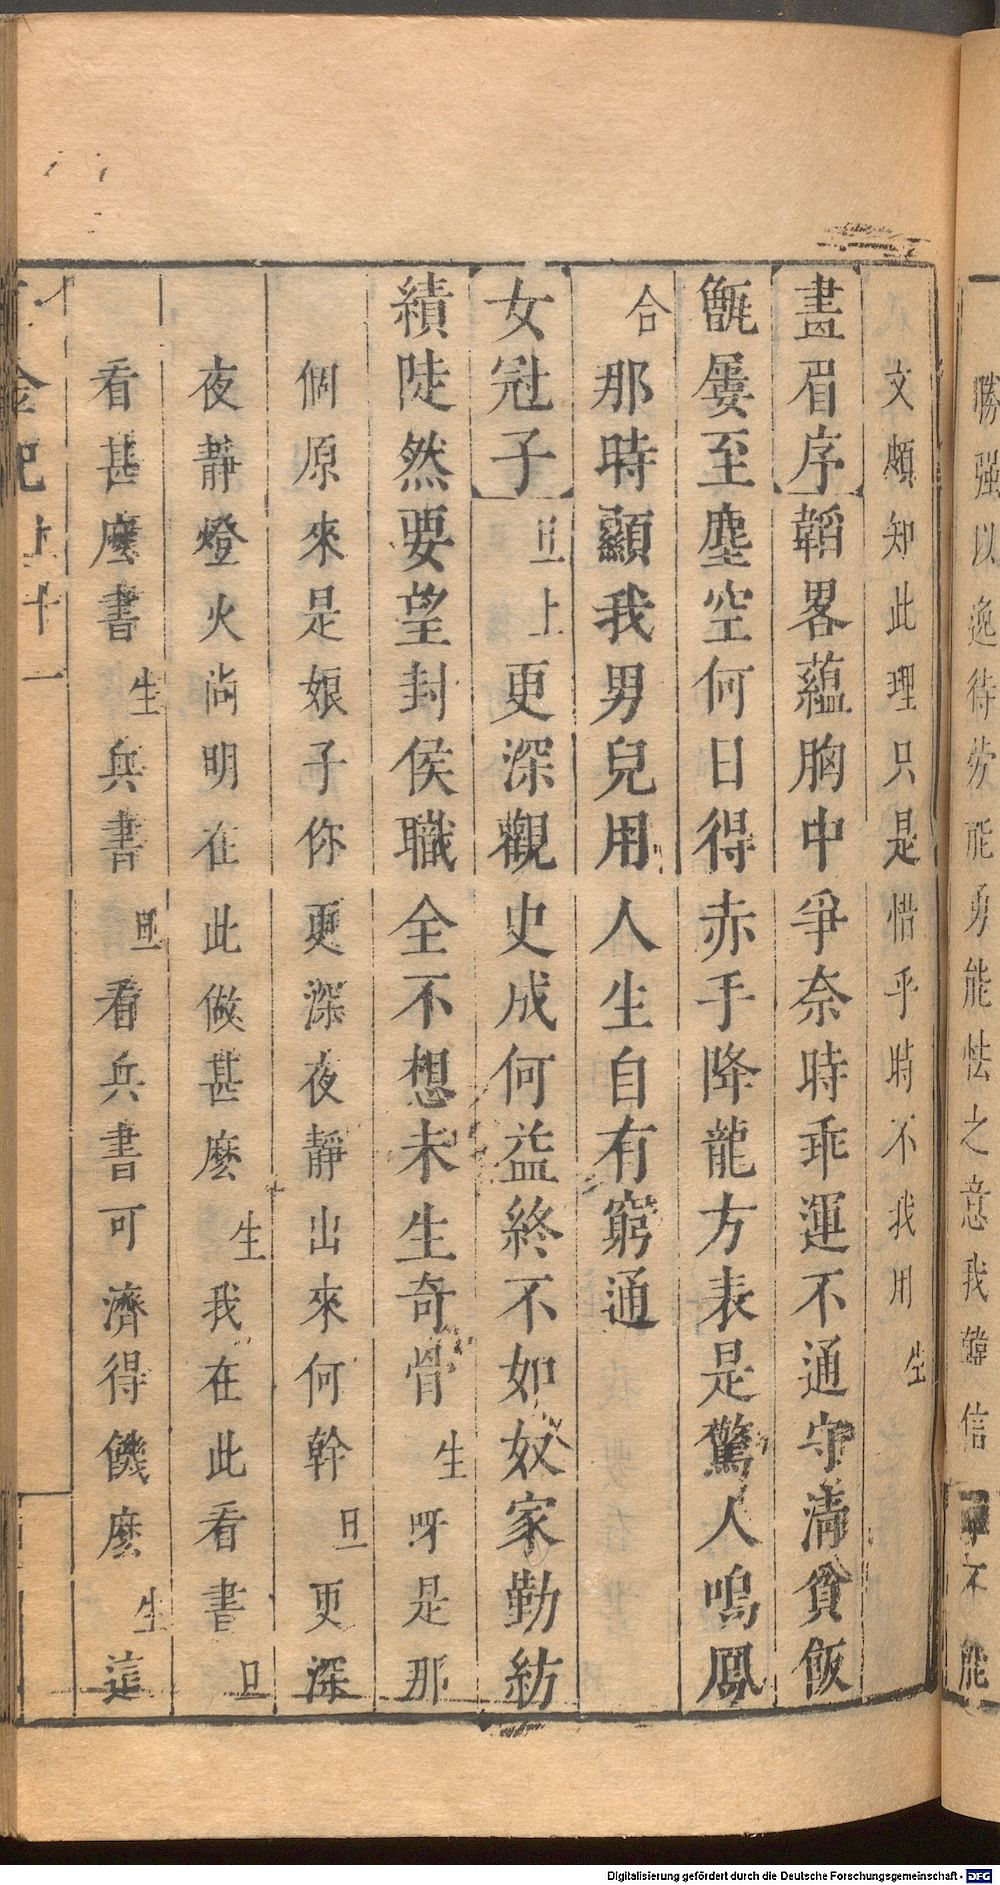 勝強以逸待勞能勇能怯之意我韓信不能
文頗知此理只是惜乎時不我用生
畫眉序韜畧蘊胸中爭奈時乖運不通守淸貧飯
甑屢至塵空何日得赤手降龍方表是驚人鳴鳳
合那時顯我男兒用人生自有窮通
女冠子旦上更深觀史成何益終不如奴家勤紡
績陡然要望封侯職全不想未生奇骨生呀是那
個原來是娘子你更深夜靜出來何幹旦更深
夜靜燈火尚明在此做甚麽生我在此看書旦
看甚麽書生兵書旦看兵書可濟得饑麽生這
千金記上十一
Digitalisierung gefördert durch die Deutsche Forschungsgemeinschaft - DFG